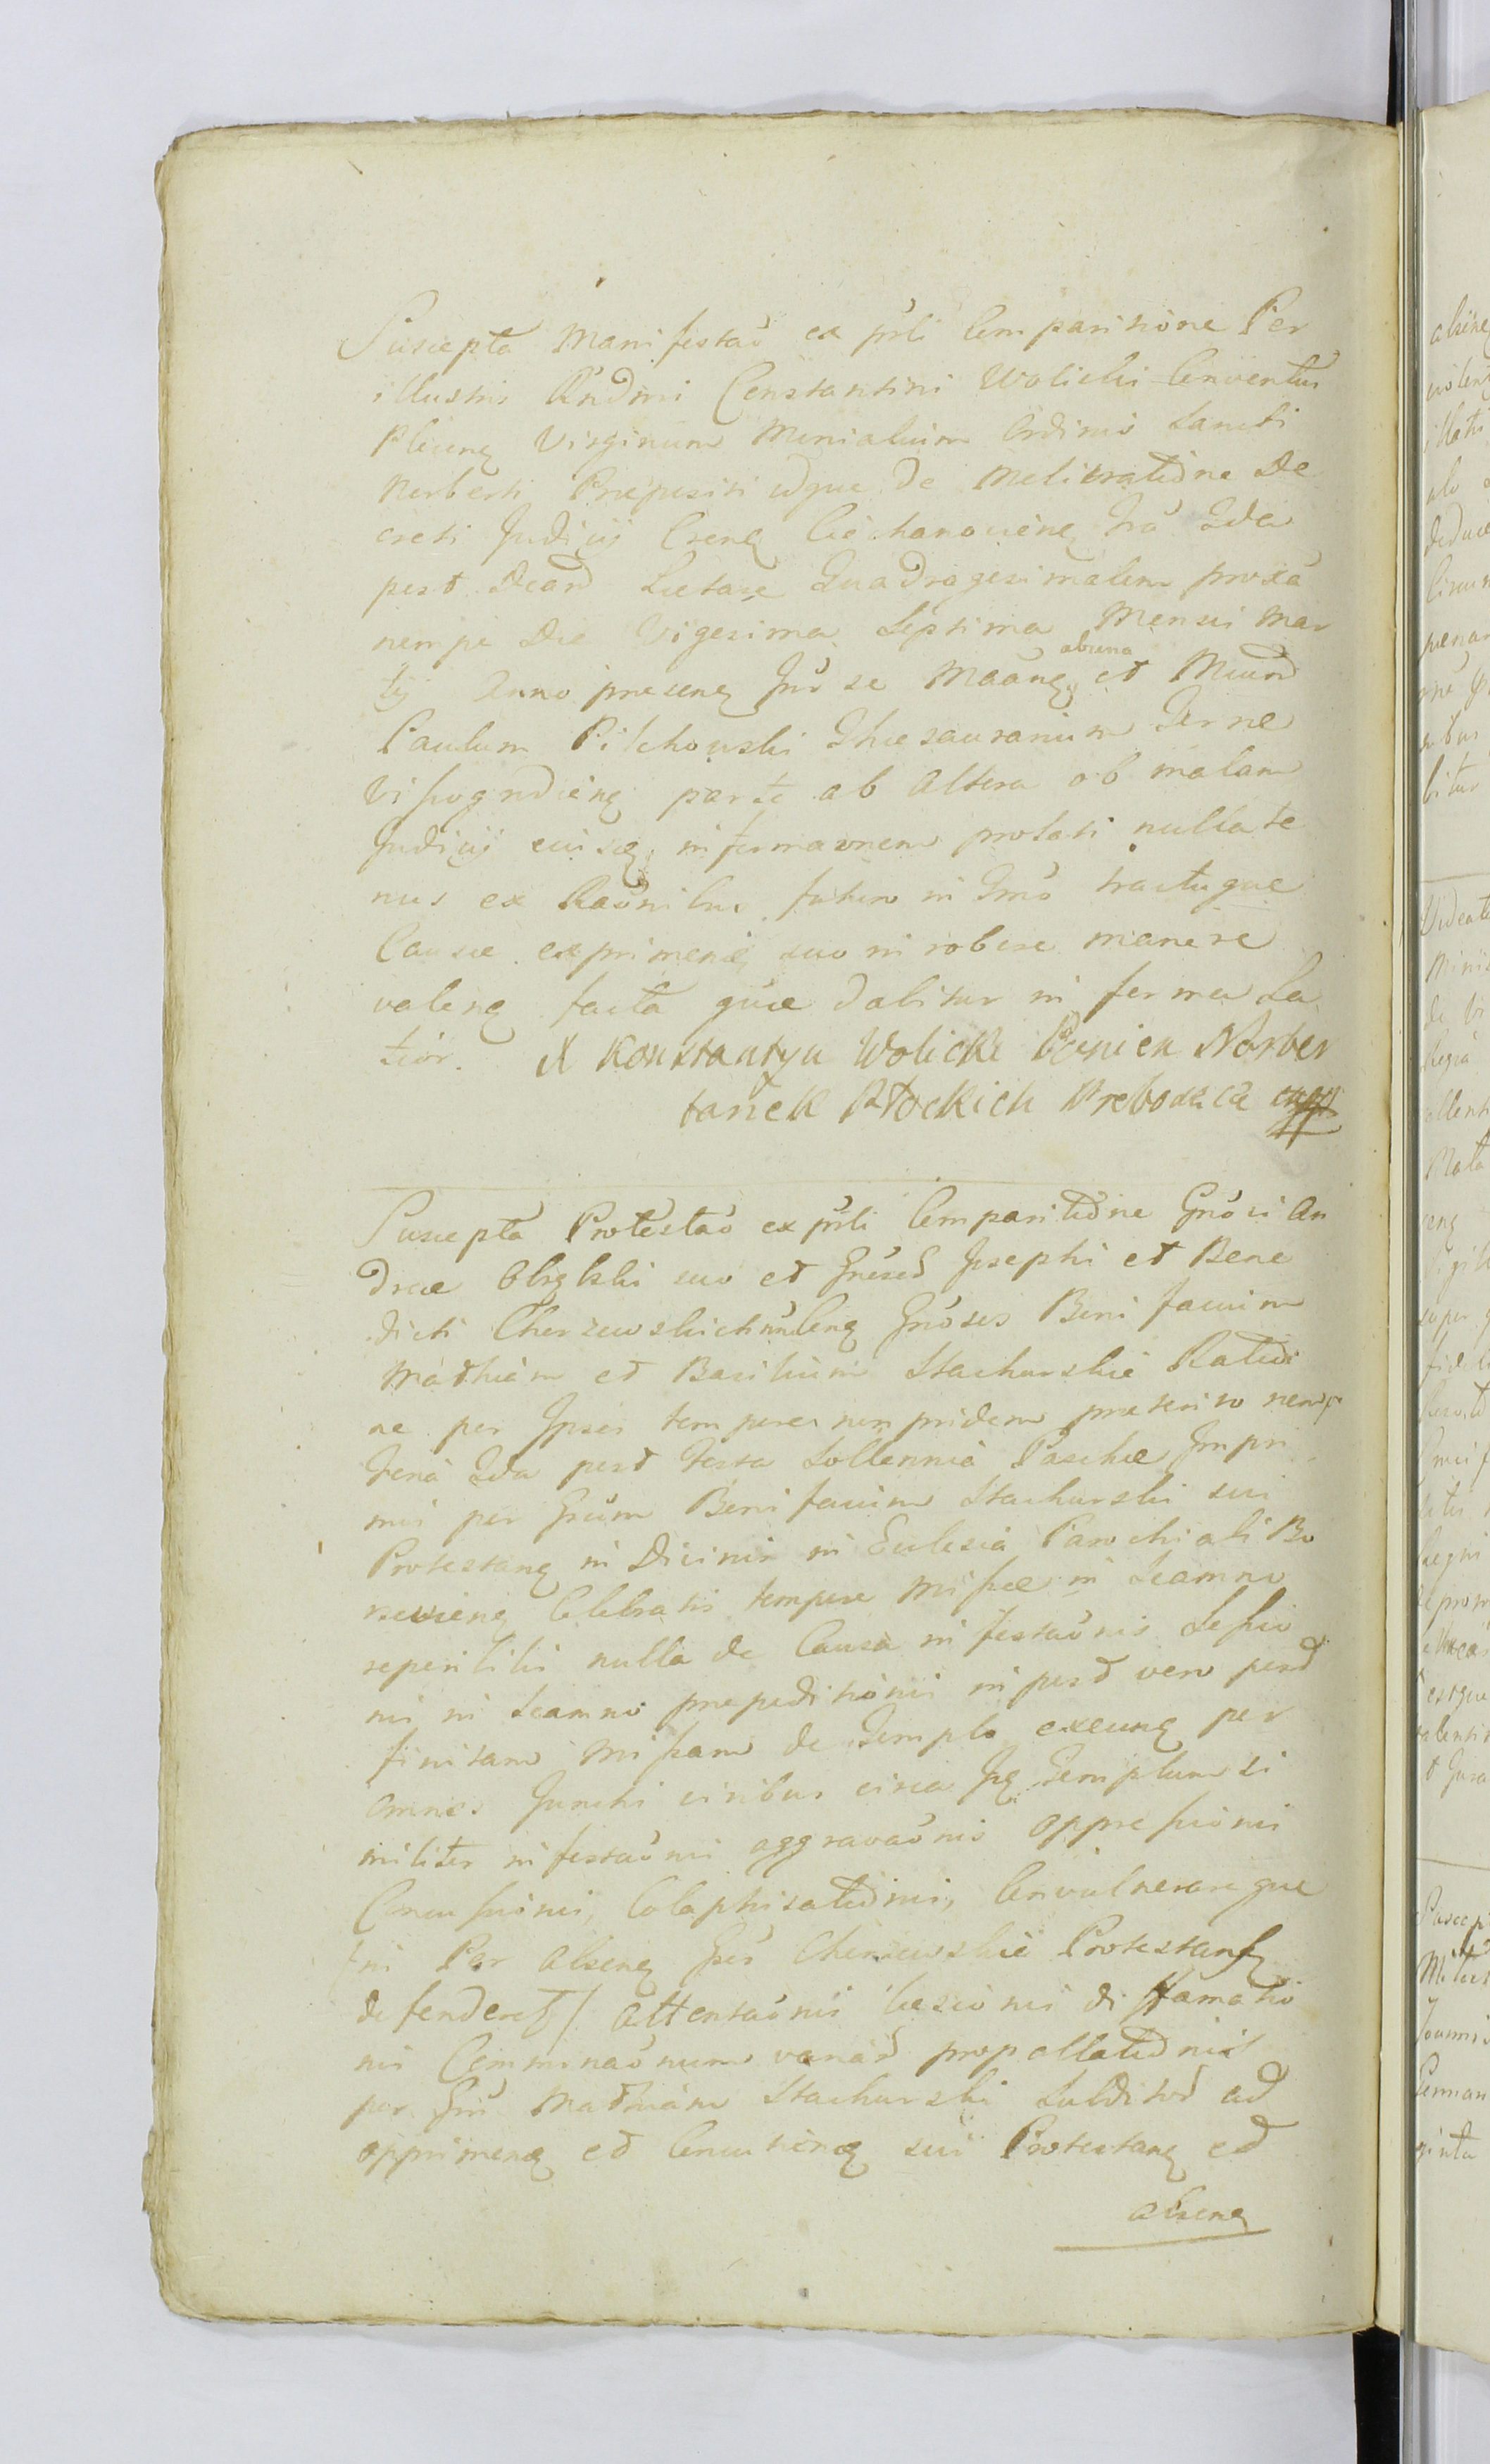 Suscepta Manifestaõ ex pñti Comparitione Per
illustris Rñdmi Constantini Wolicki Conventus
Plocens Virginum Monialium Ordinis Sancti
Norberti Præpositi idque de
creti Judicij Crens Ciechanoviens Fria 2da
post Dcam Lætare Quadragesimalem proxa
nempe Die Vigesima Septima Mensis Mar
tij Anno præsens Inr se Maãns ab una et Mcum
Paulum Pilchowski Thesaurarium Terræ
Vißogrodiens parte ab altera ob malam
Judicij eiusq informaõnem prolati nullate
nus ex Raõnibus futuro in Tmõ tractuque
Causæ exprimens suo in robore manere
valens facta quæ dabitur in forma La
tior. X Konstantyn Wolicki Norber
tanek Płockich Proboszcz mpp
Suscepta Protestaõ ex pñti Comparitione Gñosi An
dreæ suo et Gñosor Josephi et Bene
dicti Cherzewskich nõie Gñosos Bonifacium
Mathiam et Basilium Stachurskie Ratiõ
ne per Ipsos tempore non pridem præterito nempe
Feria 2da post Festa Sollennia Paschæ Impri
mis per Gsum Bonifacium Stachurski sui
Protestans in Divinis in Ecclesia Parochiali Bo
Celebratis tempore Mißæ in Scamno
reperibilis nulla de Causa infestaõnis Seßio
nis in Scamno præpeditionis in post vero post
finitam Mißam de Templo exeuns per
omnes Junctis viribus circa Ips Templum si
militer infestaõnis aggravaõnis oppreßionis
Concußionis, Colaphisatiõnis, Convulnerareque
/ni Per absens Gsos Cherzewskie Protestans
defenderet/ attentaõnis læsionis diffamatio
nis Comminaõnum variar propallatiõnis
per Gsũ Mathiam Stachurski Subditor ad
opprimens et Concutiens sui Protestans et
absens